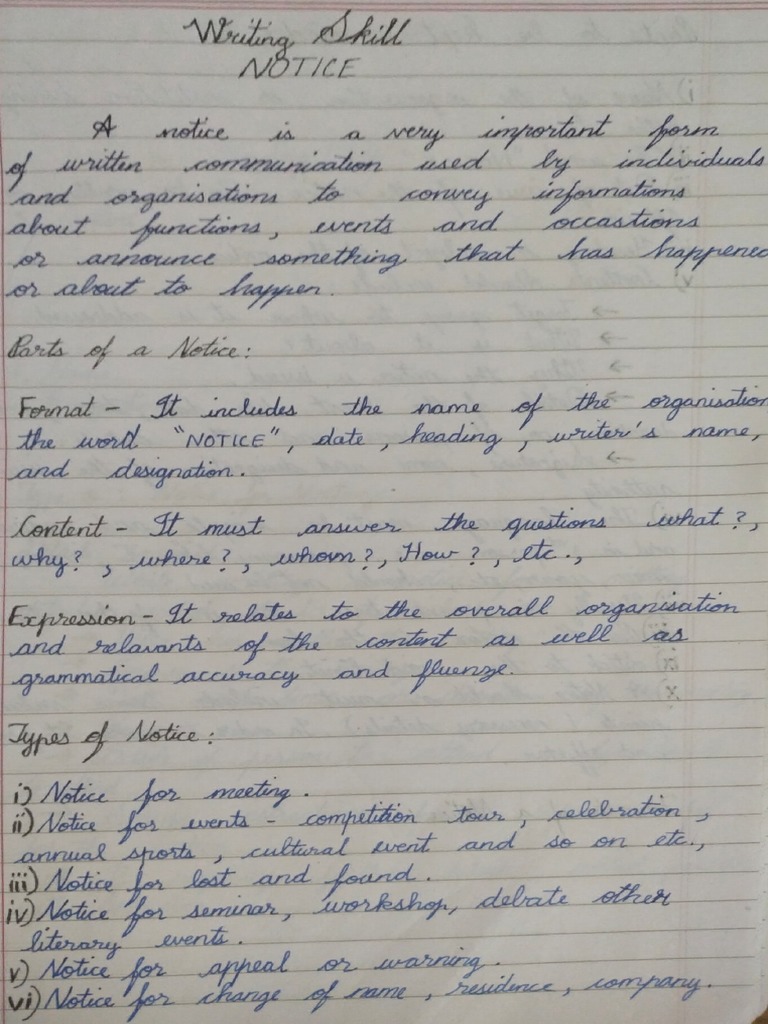 Writing Skill
NOTICE
A notice is a very important form
of written communication used by individuals
and organisations to convey informations
about functions, events and occastions
or announce something that has happened
or about to happen.
Parts of a Notice:
Format - It includes the name of the organisation
the word "NOTICE", date, heading, writer's name,
and designation.
Content - It must answer the questions what?,
why?, where?, whom?, How?, etc.,
Expression - It relates to the overall organisation
and relavants of the content as well as
grammatical accuracy and fluenze.
Types of Notice:
i) Notice for meeting.
ii) Notice for events - competition tour, celebration,
annual sports, cultural event and so on etc.,
iii) Notice for lost and found.
iv) Notice for seminar, workshop, debate other
literary events.
v) Notice for appeal or warning.
vi) Notice for change of name, residence, company.